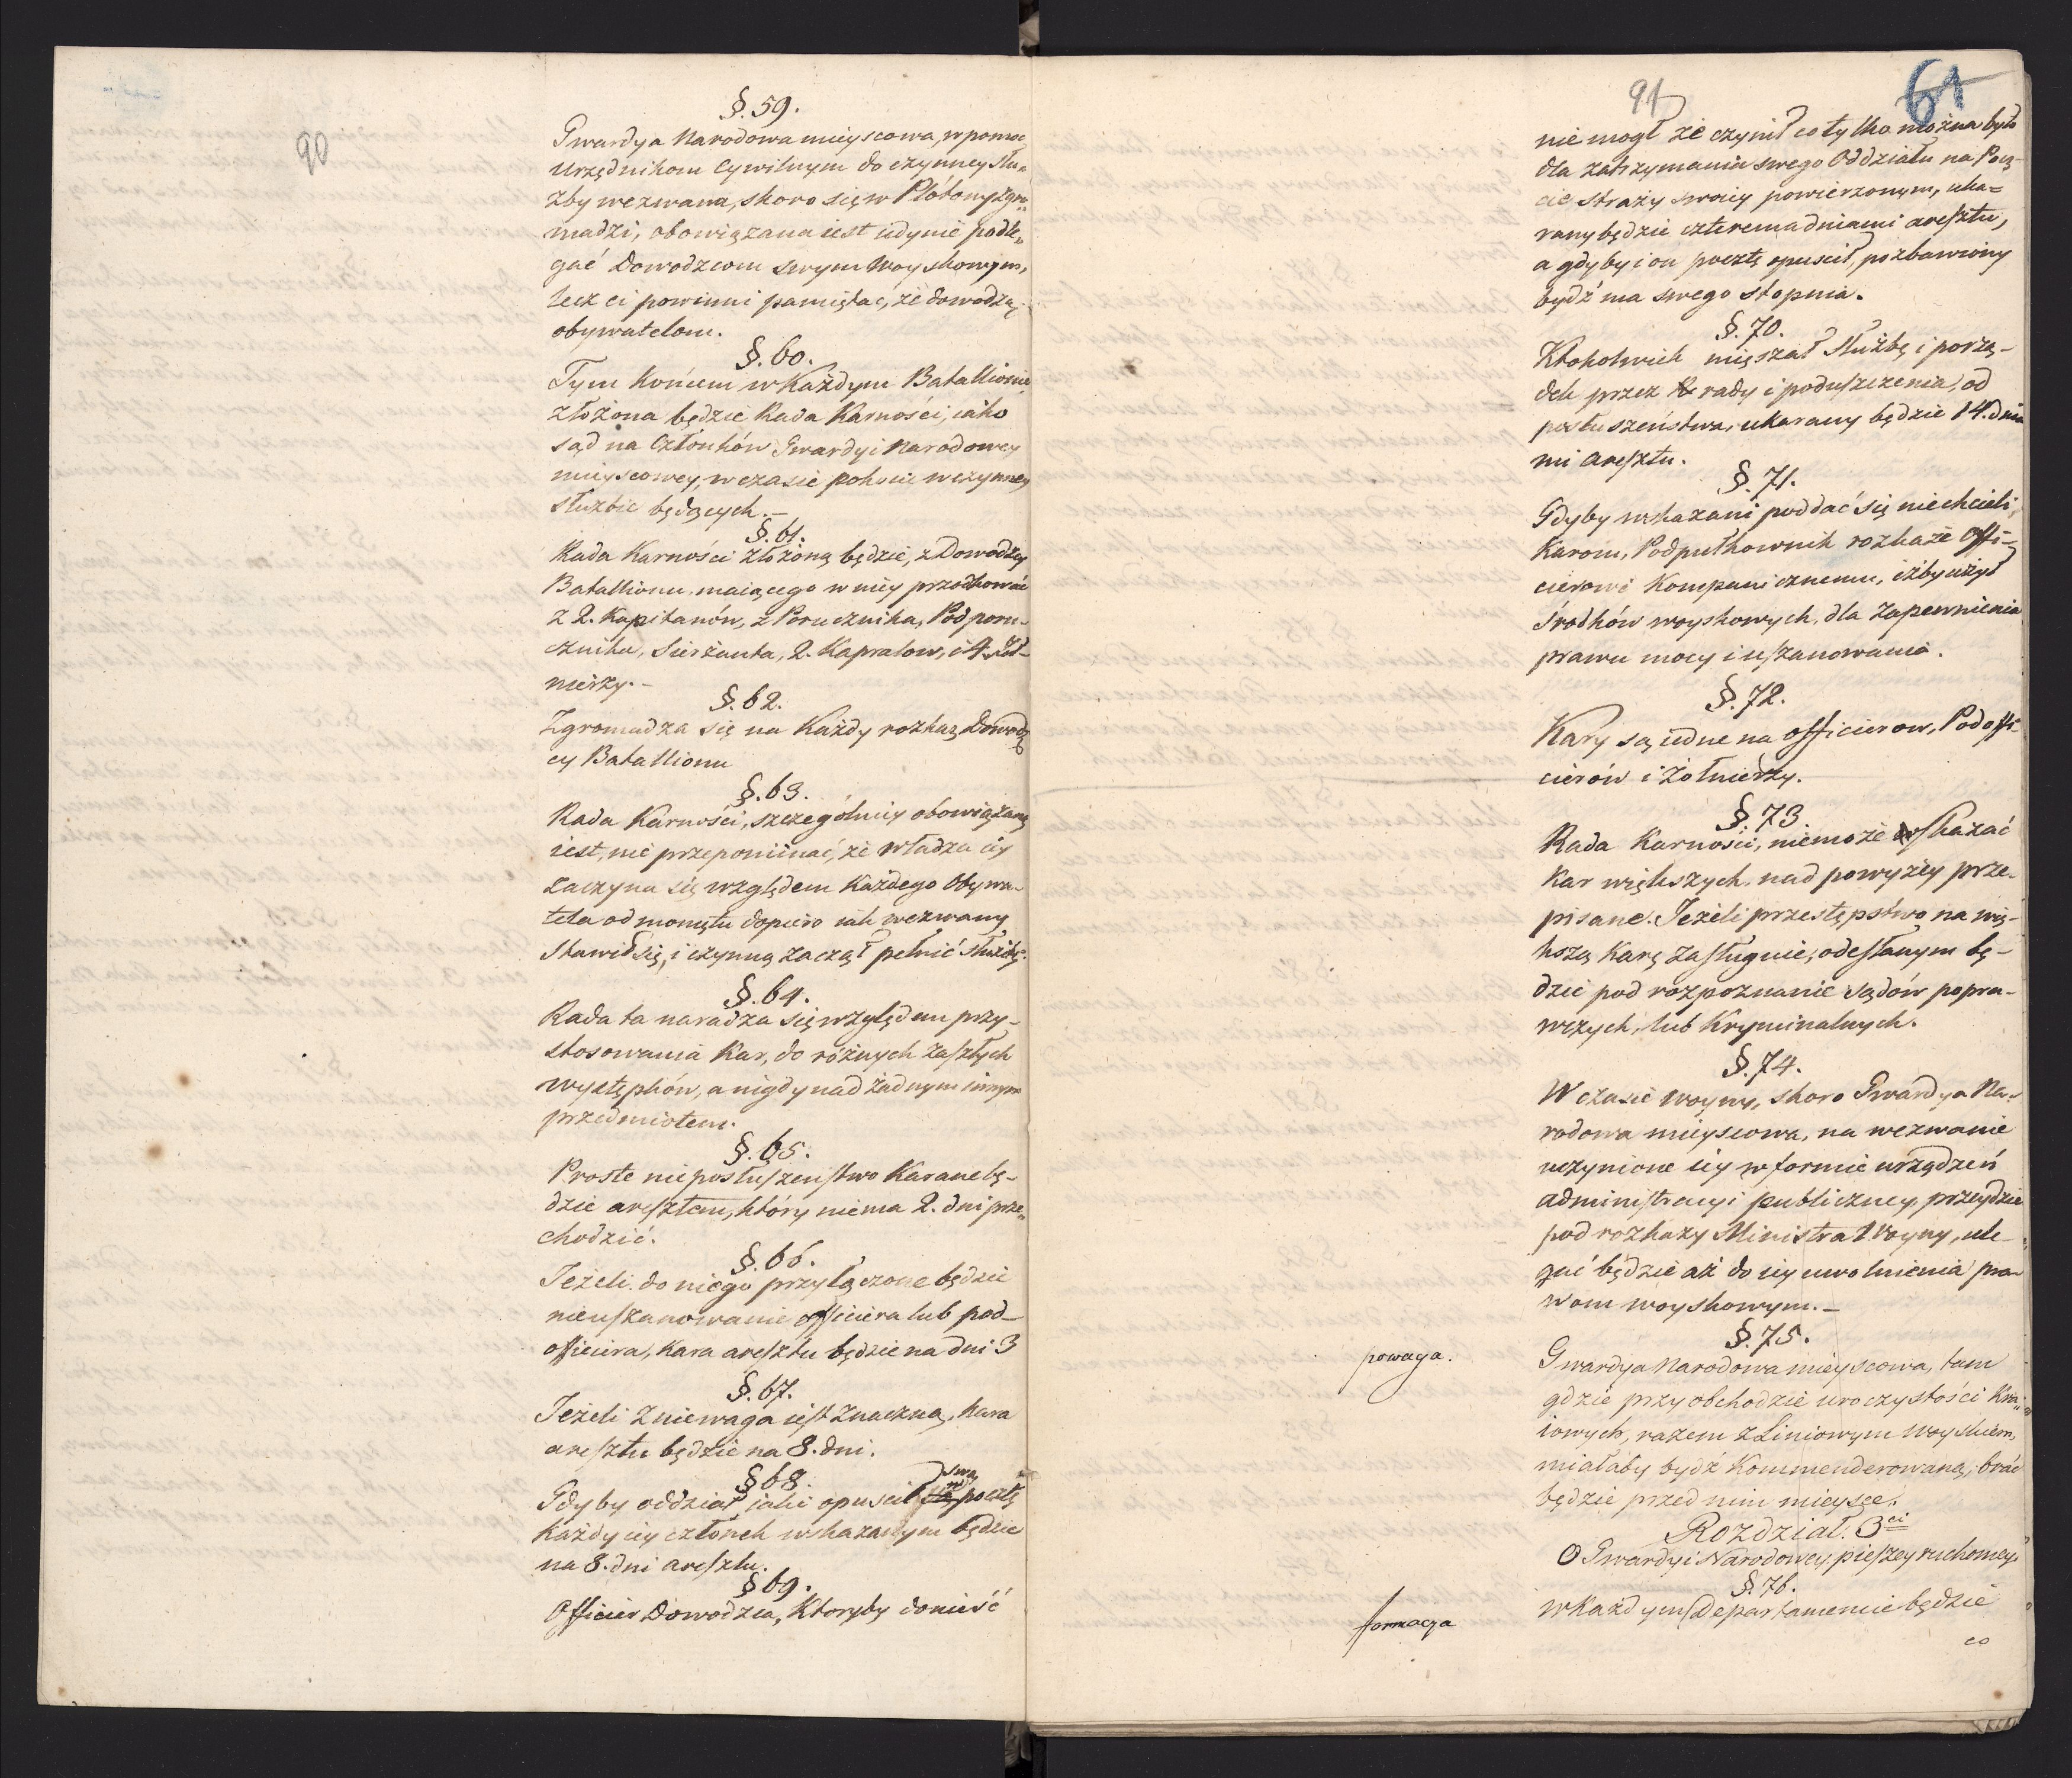 90
§. 59.
Gwardya Narodowa mieyscowa, w pomoc
Urzędnikom Cywilnym do czynney słu=
żby wezwana, skoro się w Plótony zgro=
madzi, obowiązana iest iedynie podle=
gać Dowodzcom swym Woyskowym,
lecz ci powinni pamiętać, że dowodzą
obywatelom.
§. 60.
Tym końcem w Każdym Batallionie,
złożona będzie Rada Karności, iako
sąd na Członków Gwardyi Narodowey
mieyscowey, w czasie pokoiu w czynney
służbie będących.—
§. 61.
Rada Karności złożoną będzie, z Dowodzcy
Batallionu, maiącego w niey przodkować
z 2. Kapitanów, z Porucznika, Podporu-
cznika, Sierżanta, 2. Kapralow, i 4. żoł-
nierzy.—
§. 62.
Zgromadza się na Każdy rozkaz Dowodz
cy Batallionu
§. 63.
Rada Karności, szczególniey obowiązaną
iest, nie przepominać, że władza iey
zaczyna się względem Każdego Obywa-
tela od momętu dopiero iak wezwany
stawił się, i czynną zaczął pełnić służbę.
§. 64.
Rada ta naradza się względem przy-
stosowania Kar, do różnych zaszłych
występków, a nigdy nad żadnym innym
przedmiotem.
§. 65.
Proste nieposłuszeństwo Karane bę-
dzie aresztem, który niema 2. dni prze=
chodzić.
§. 66.
Jeżeli do niego przyłączone będzie
nieuszanowanie officiera lub pod-
officiera, Kara aresztu będzie na dni 3
§. 67.
Jeżeli zniewaga iest znaczną, kara
aresztu będzie na 8. dni.
§ 68.
swą
Gdyby oddział iaki opuscił pocztę
Każdy iey członek wskazanym będzie
na 8. dni aresztu.
§ 69.
Officier Dowodzca, Ktoryby donieść
91
61
nie mogł że czynił co tylko można było
dla zatrzymania swego Oddziału na Pocz-
cie straży swoiey powierzonym, uka=
rany będzie czterema dniami aresztu,
a gdyby i on pocztę opuscił, pozbawiony
bydź ma swego stopnia.
§. 70.
Ktokolwiek mięszał Służbę i porzą-
dek przez rady i poduszczenia, od
posłuszeństwa, ukarany będzie 14. dnia
mi aresztu.
§ 71.
Gdyby wskazani poddać się niechcieli,
Karom, Podpułkownik rozkaże Offi-
cierowi Kompanicznemu, iżby użył
środków woyskowych, dla zapewnienia
prawu mocy i uszanowania.
§. 72.
Kary są iedne na officierow, Podoffi-
cierów i żołnierzy.
§ 73.
Rada Karności, niemoże wskazać
Kar większych, nad powyżey prze-
pisane. Jeżeli przestępstwo na wię-
kszą Karę zasługuie, odesłanym bę-
dzie pod rozpoznanie Sądów popra-
wczych, lub Kryminalnych.
§. 74.
W czasie Woyny, skoro Gwardya Na-
rodowa mieyscowa, na wezwanie
uczynione iey w formie urządzeń
administracyi publiczney, przeydzie
pod rozkazy Ministra Woyny, ule-
gać będzie aż do iey uwolnienia pra-
wom woyskowym.—
§. 75.
powaga.
Gwardya Narodowa mieyscowa, tam
gdzie przy obchodzie uroczystości Kra=
iowych, razem z Liniowym Woyskiem,
miałaby bydź Kommenderowaną, brać
będzie przed nim mieysce.
Rozdział. 3ci
O Gwardyi Narodowey pieszey ruchomey.
§. 76.
formacya
w Każdym Departamencie będzie
co